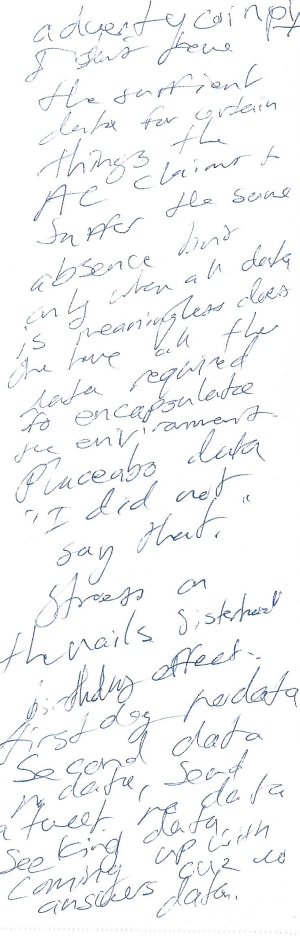 the sufficient
data for certain
things the
AC claims to
suffer the same
absence but
only when all data
is meaningless does
one have all the
data required
to encapsulate
the environment.
Placeabo data
"I did not
say that."
Stress on
the nails sisterhood
birthday effect.
first dog no data
Second data
no data, send
a tweet. no data
Seeking data,
coming up with
answers cuz no
data.